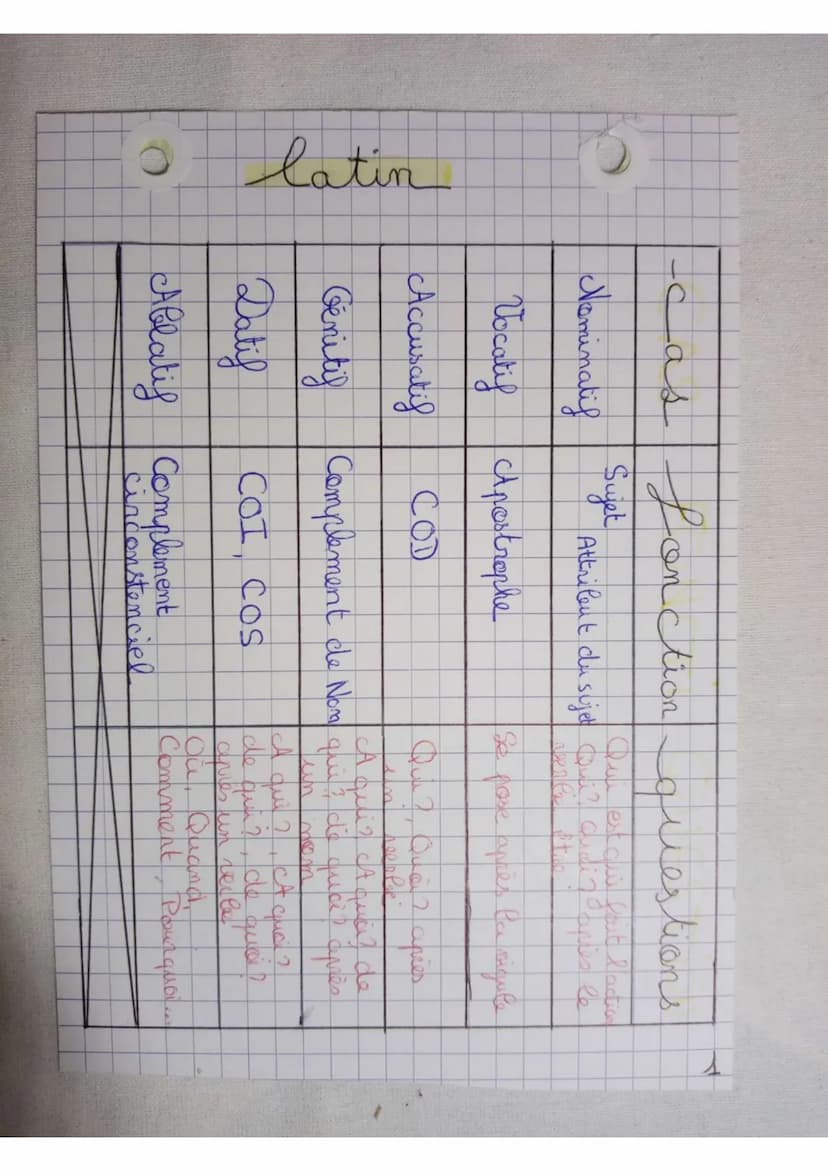 latin
Cas
fonction
questions
Nominatif
Sujet
Attribut du sujet
Qui est qui fait l'action
Qui? Quoi? après le
verbe être
Vocatif
Apostrophe
Se pose après la virgule
Accusatif
COD
Qui?, Quoi? après
un verbe
Génitif
Complement de Nom
A qui? A quoi? de
qui? de quoi? après
un nom
Datif
COI, COS
A qui?, A quoi?
de qui?, de quoi?
après un verbe
Ablatif
Complement
circonstenciel
Où, Quand,
Comment, Pourquoi...
1